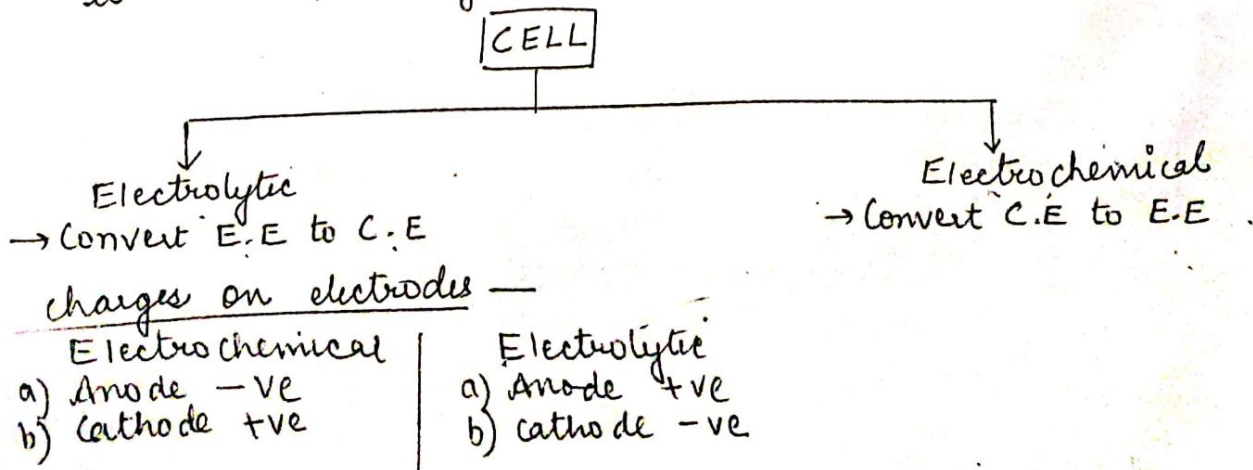 CELL
Electrolytic
→ Convert E.E to C.E
Electrochemical
→ Convert C.E to E.E
charges on electrodes —
Electrochemical
a) Anode -ve
b) Cathode +ve
Electrolytic
a) Anode +ve
b) cathode -ve